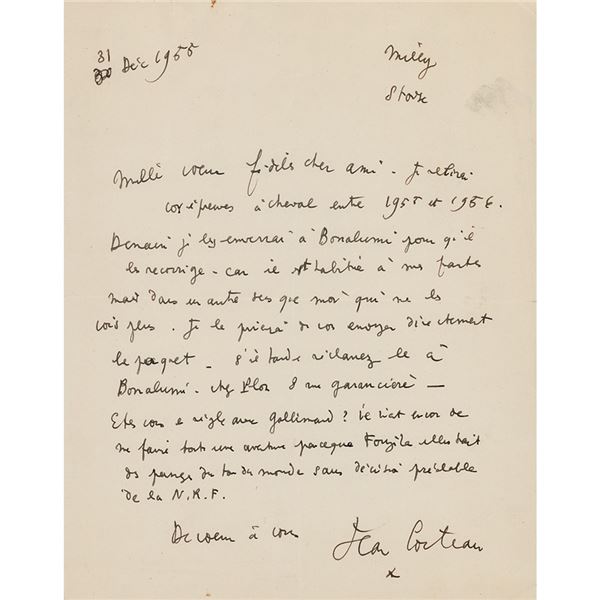 31 Déc 1955
Milly
S et Oise
Mille cœurs fidèles cher ami. Je relirai
vos épreuves à cheval entre 1955 et 1956.
Demain je les enverrai à Bonalumi pour qu'il
les recorrige - car il est habitué à mes fautes
mais dans un autre sens que moi qui ne les
vois plus. Je le prierai de vous envoyer directement
le paquet - s'il tarde réclamez le à
Bonalumi. chez Plon 8 rue garancière -
Etes vous en règle avec Gallimard? Il vient encore de
me faire toute une aventure parceque illustrait
des pages du tour du monde sans décision préalable
de la N.R.F.
De cœur à vous
Jean Cocteau